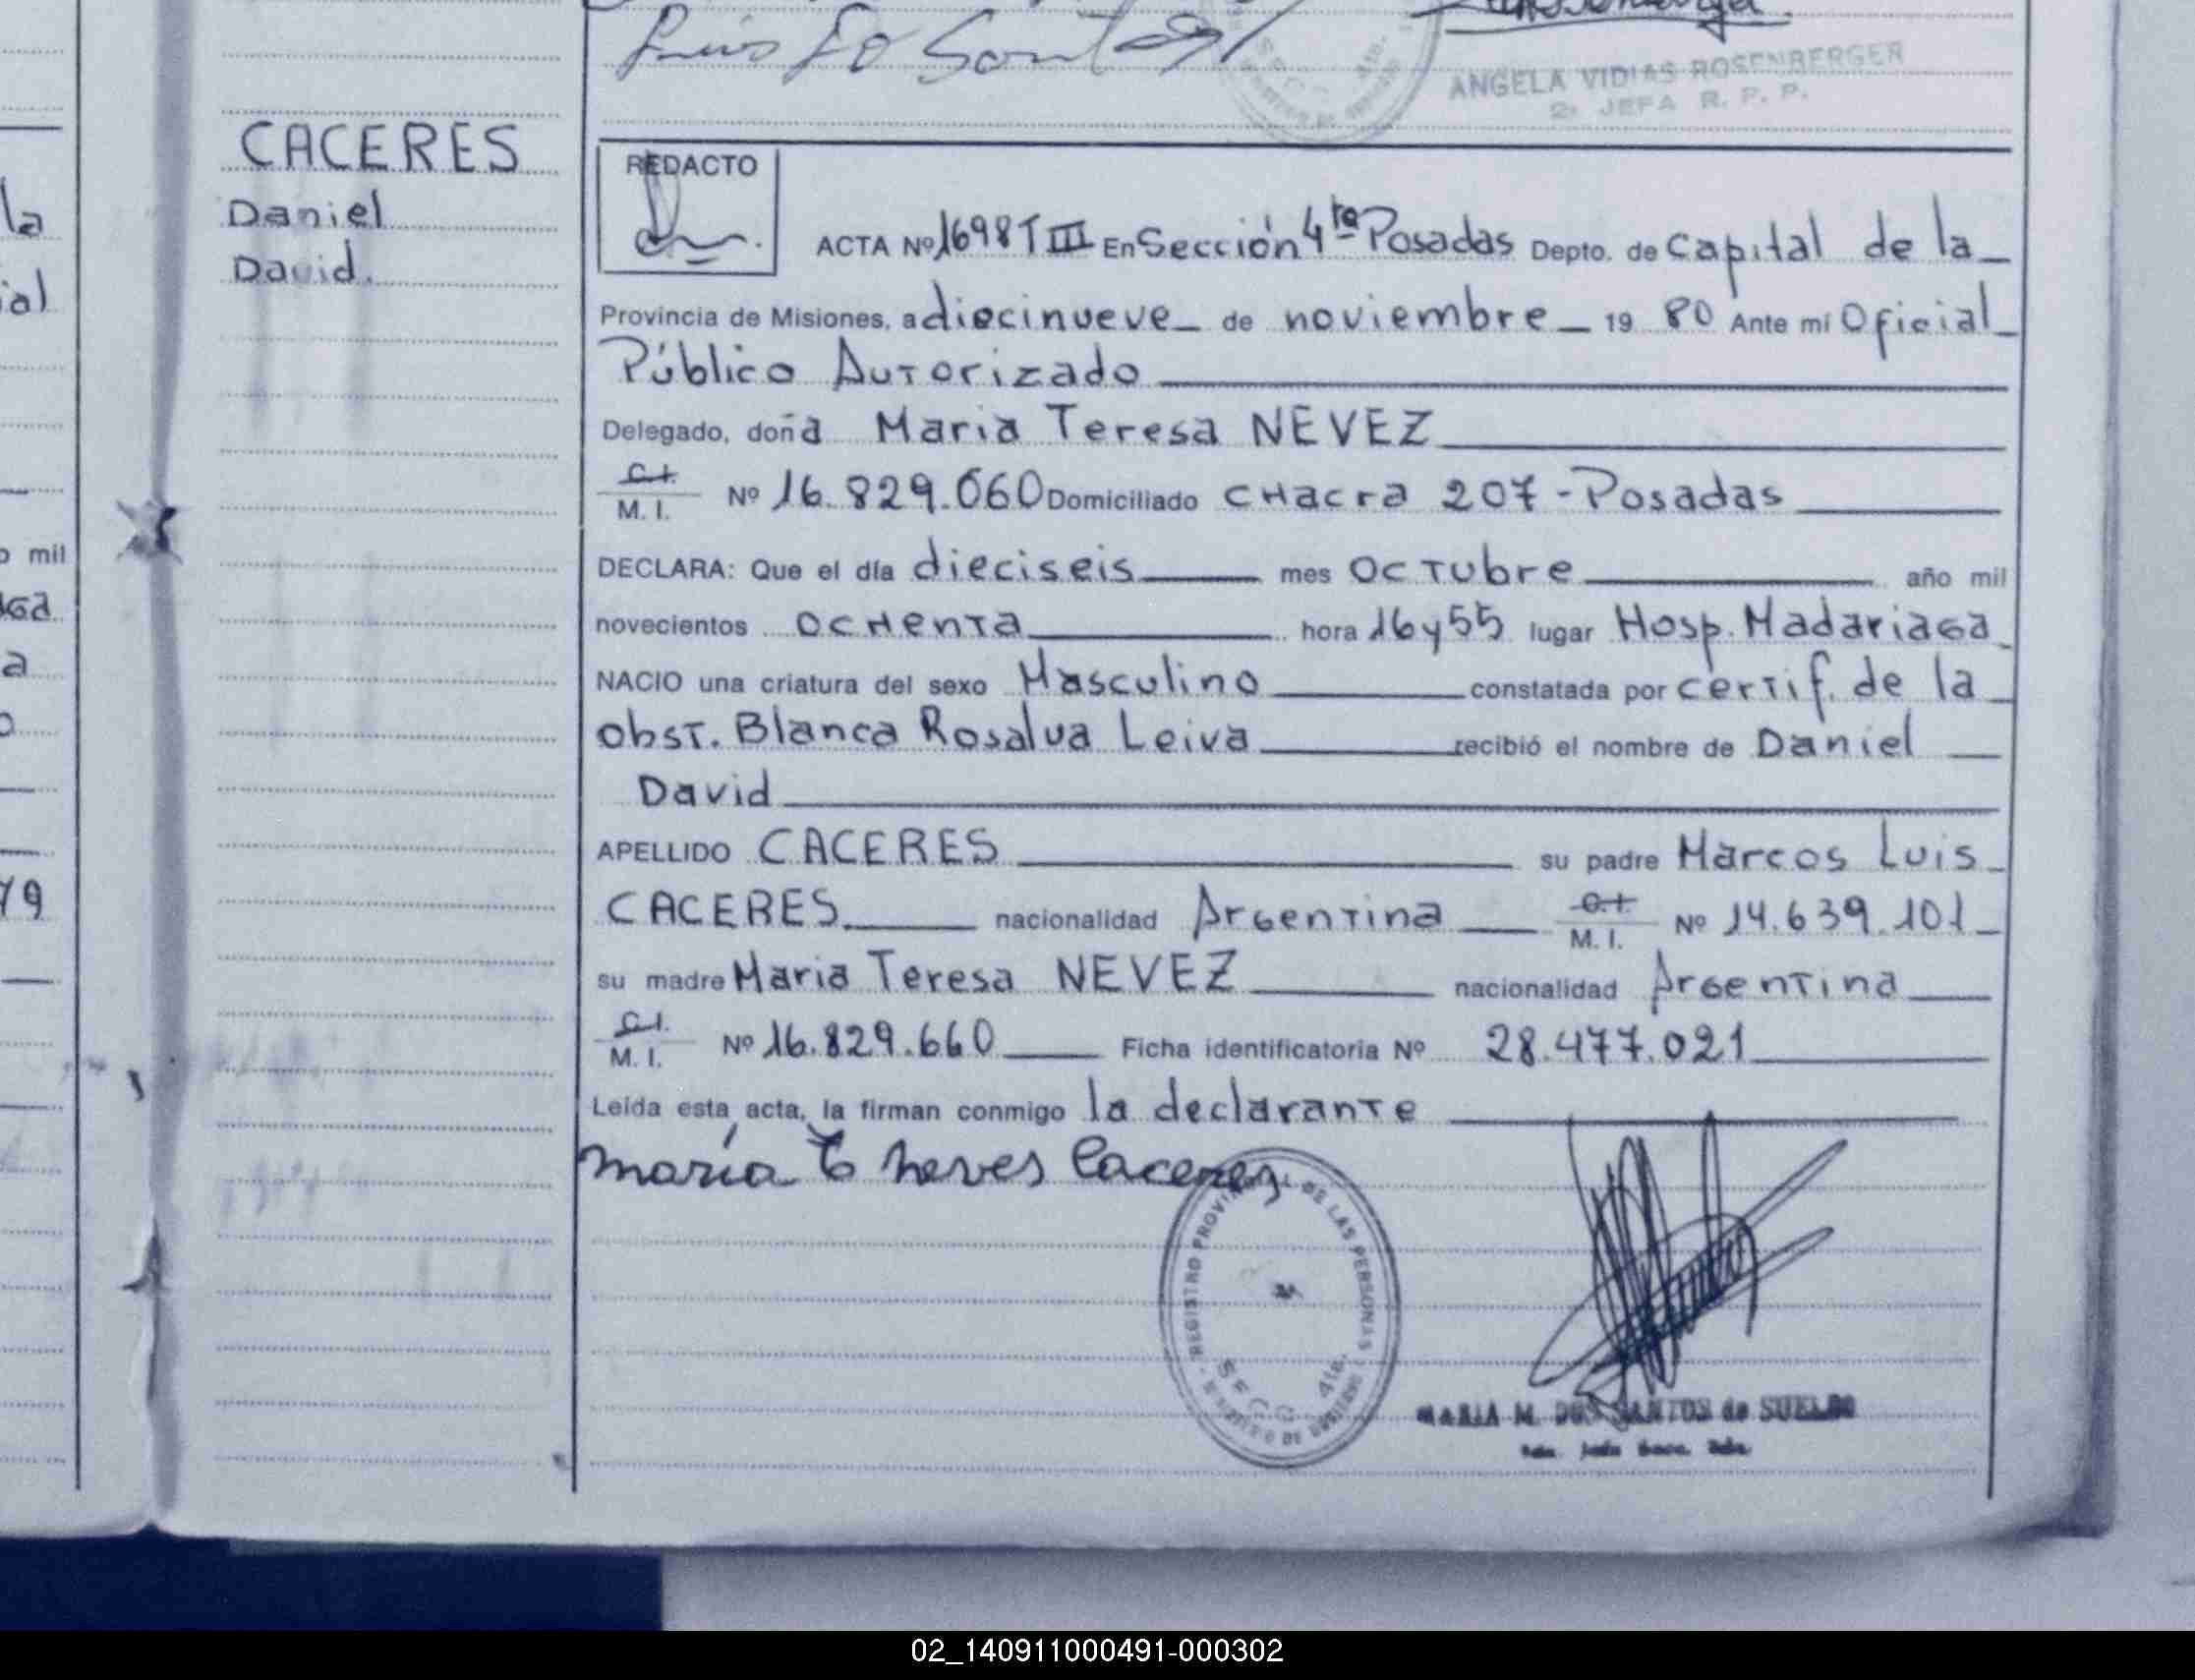 Luis Fo Santos
ANGELA VIDIAS ROSENBERGER
2º JEFA R. P. P.
CACERES
Daniel
David.
la
ial
o mil
a
79
REDACTO
ACTA Nº 1698 T III En Sección 4ta Posadas Depto. de Capital de la
Provincia de Misiones, a diecinueve de noviembre 19 80 Ante mí Oficial
Público Autorizado
Delegado, doña Maria Teresa NEVEZ
C.I.
M. I. Nº 16.829.060 Domiciliado CHacra 207 - Posadas
DECLARA: Que el día dieciseis mes Octubre año mil
novecientos OCHenTa hora 16 y 55 lugar Hosp. Madariaga
NACIO una criatura del sexo Masculino constatada por certif. de la
obst. Blanca Rosalva Leiva recibió el nombre de Daniel
David
APELLIDO CACERES su padre Marcos Luis
CACERES nacionalidad Argentina C.I.
M. I. Nº 14.639.101
su madre Maria Teresa NEVEZ nacionalidad Argentina
C.I.
M. I. Nº 16.829.660 Ficha identificatoria Nº 28.477.021
Leída esta acta, la firman conmigo la declarante
maría T neves Caceres
REGISTRO PROVINCIAL DE LAS PERSONAS
SECC. 4ta.
MARIA M. DOS SANTOS de SUELDO
02_140911000491-000302